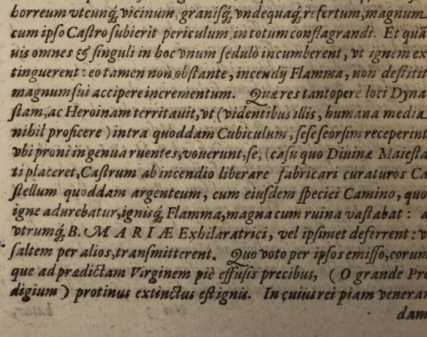 horreum vtcunq́; vicinum, granisq́; vndequaq́; refertum, magnum
cum ipso Castro subierit periculum, in totum conflagrandi. Et quā
uis omnes & singuli in hoc vnum sedulò incumberent, vt ignem ex
tinguerent: eo tamen non obstante, incendij Flamma, non destitit
magnum sui accipere incrementum. Quæ res tantopere loci Dyna
stam, ac Heroinam territauit, vt (videntibus illis, humana media
nihil proficere) intra quoddam Cubiculum, sese seorsim receperint
vbi proni in genua ruentes, vouerunt, se, (casu quo Diuinæ Maiesta
ti placeret, Castrum ab incendio liberare fabricari curaturos Ca
stellum quoddam argenteum, cum eiusdem speciei Camino, quo
igne adurebatur, ignisq́; Flamma, magna cum ruina vastabat:
vtrumq́; B. MARIÆ Exhilaratrici, vel ipsimet deferrent:
saltem per alios, transmitterent. Quo voto per ipsos emisso, corum
que ad prædictam Virginem piè effusis precibus, (O grande Pro
digium) protinus extinctus est ignis. In cuius rei piam veneran
dam